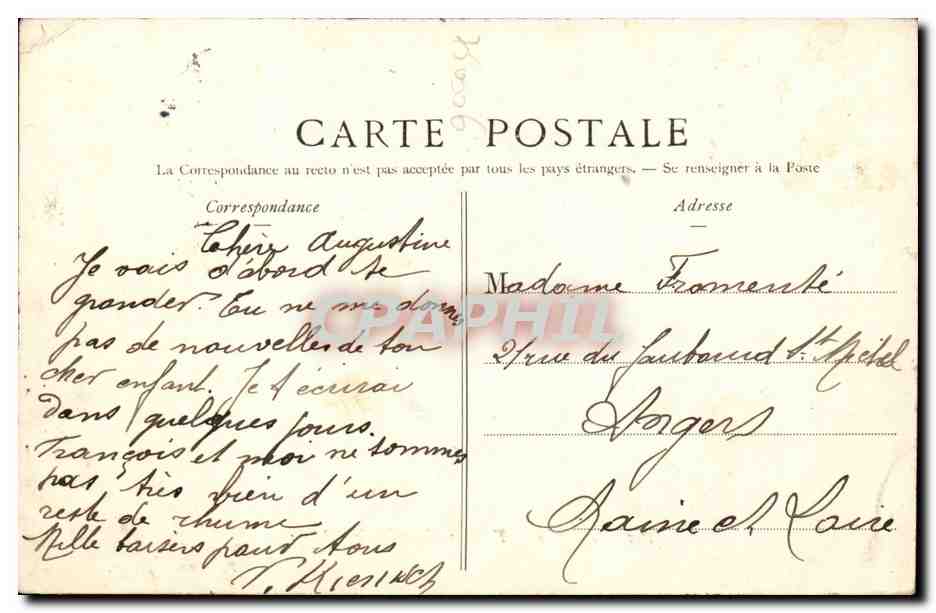 CARTE POSTALE
La Correspondance au recto n'est pas acceptée par tous les pays étrangers. — Se renseigner à la Poste
Correspondance
Chère Augustine
Je vais d'abord te
gronder. Tu ne me donnes
pas de nouvelles de ton
cher enfant. Je t'écrirai
dans quelques jours.
François et moi ne sommes
pas très bien d'un
reste de rhume
Mille baisers pour tous
V.
Adresse
Madame Fromenté
21 rue du Faubourd St. Michel
Angers
Maine et Loire
CPAPHIL